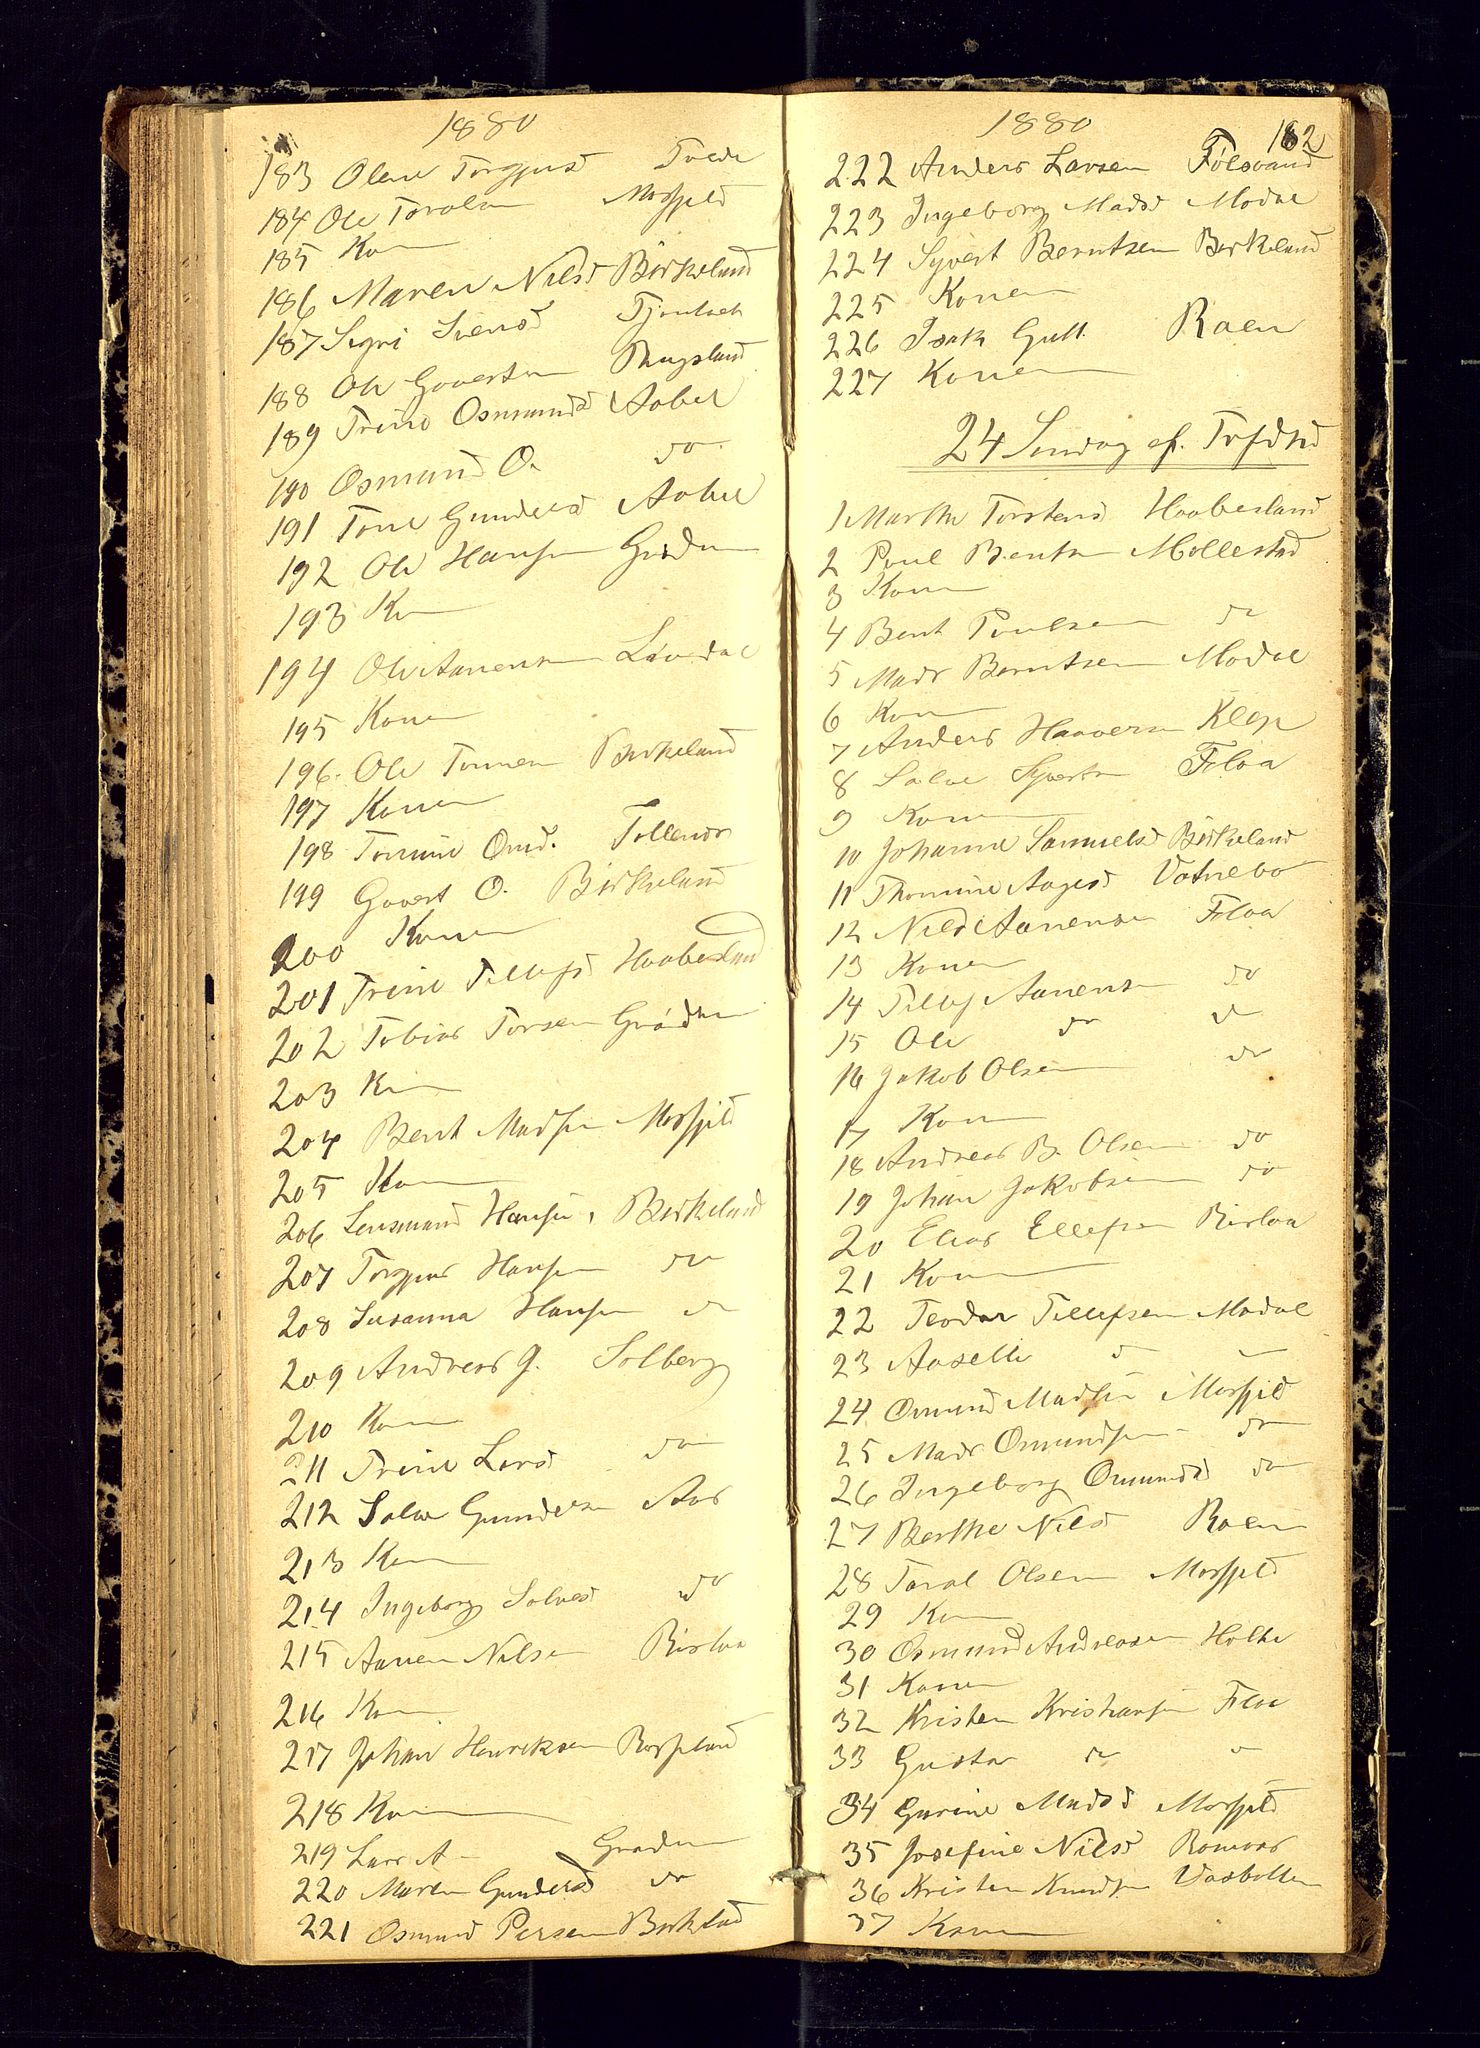 1880
183 Olene Torgjusd Tvede
184 Ole Toralen Mosfjeld
185 Kon
186 Maren Nilsd Birkeland
187 Sigri Svensd
188 Ole Govertsn Rugsland
189 Trine Osmundsd Aabel
190 Osmund O. do
191 Tone Gundersd Aabel
192 Ole Hansen Grødum
193 Kon
194 Ole Aanensen Løvdal
195 Konen
196. Ole Tonnesen Birkeland
197 Konen
198 Tomine Omd. Tollenes
199 Govert O. Birkeland
200 Konen
201 Trine Tellefsd Haabesland
202 Tobias Torsen Grødum
203 Kon
204 Bent Madsen Mosfjeld
205 Kon
206 Lensmand Hansen, Birkeland
207 Torgjus Hansen do
208 Susanna Hansen do
209 Andreas J. Solberg
210 Kon
211 Trine Larsd do
212 Salve Gundersen Aas
213 Kon
214 Ingeborg Salvesd do
215 Aanen Nilsen Risløa
216 Kon
217 Johan Henriksen Rosseland
218 Kon
219 Lars A Grødum
220 Marthe Gundersd do
221 Osmund Persen Birketad
1880
182
222 Anders Larsen Følsvand
223 Ingeborg Madsd Modal
224 Syvert Berntsen Birkeland
225 Konen
226 Isak Gull Raen
227 Konen
24 Søndag ef. Trefdhd
1 Marthe Torstensd Haabesland
2 Poul Bentsen Mollestad
3 Kon
4 Bent Poulsen do
5 Mads Berntsen Modal
6 Kon
7 Anders Haaversn Klep
8 Salve Syvertsn Floa
9 Kon
10 Johanne Samuelsd Birkeland
11 Thomine Aagesd Vatnebo
12 Nils Aanensen Floa
13 Konen
14 Tellef Aanensn do
15 Ole do do
16 Jakob Olsen do
17 Kon
18 Andreas B. Olsen do
19 Johan Jakobsen do
20 Elias Ellefsen Risløa
21 Kon
22 Teodor Tellefsen Modal
23 Aaselle do
24 Omund Madsen Mosfjeld
25 Mads Omundsen do
26 Ingeborg Omundsd do
27 Berthe Nilsd Raen
28 Taral Olsen Mosfjeld
29 Kon
30 Osmund Andreasen Holte
31 Konen
32 Kristen Kristiansen Floa
33 Gustav do do
34 Gurine Madsd Mosfjeld
35 Josefine Nilsd
36 Kristen Knudsen Vasbotten
37 Konen